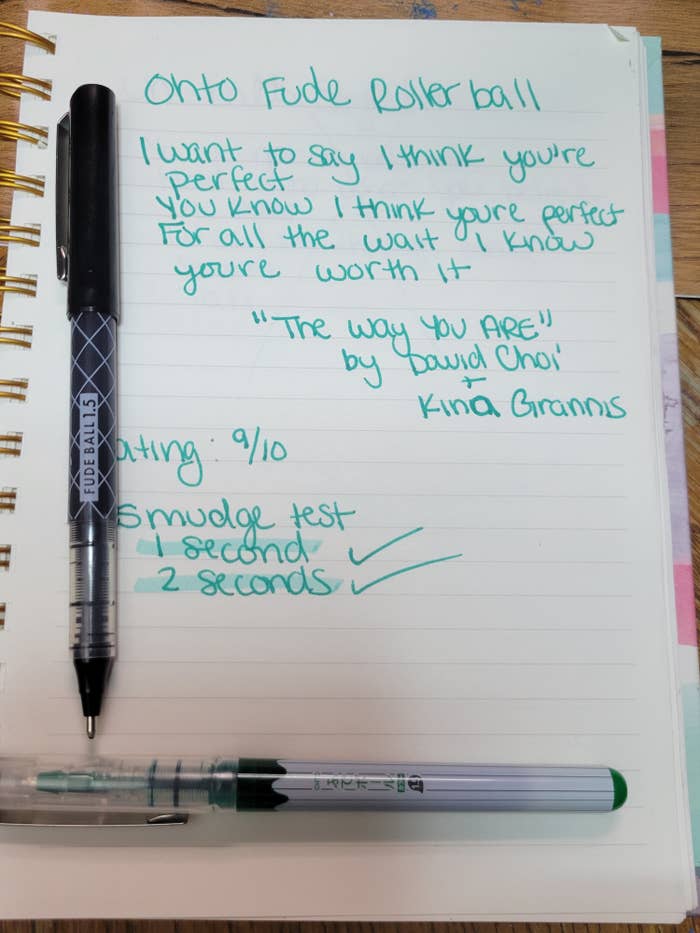 Ohto Fude Rollerball
I want to say I think you're
perfect
You know I think youre perfect
For all the wait I know
youre worth it
"The way you ARE"
by David Choi
+
Kina Grannis
ating: 9/10
smudge test
1 second ✓
2 seconds ✓
FUDE BALL 1.5